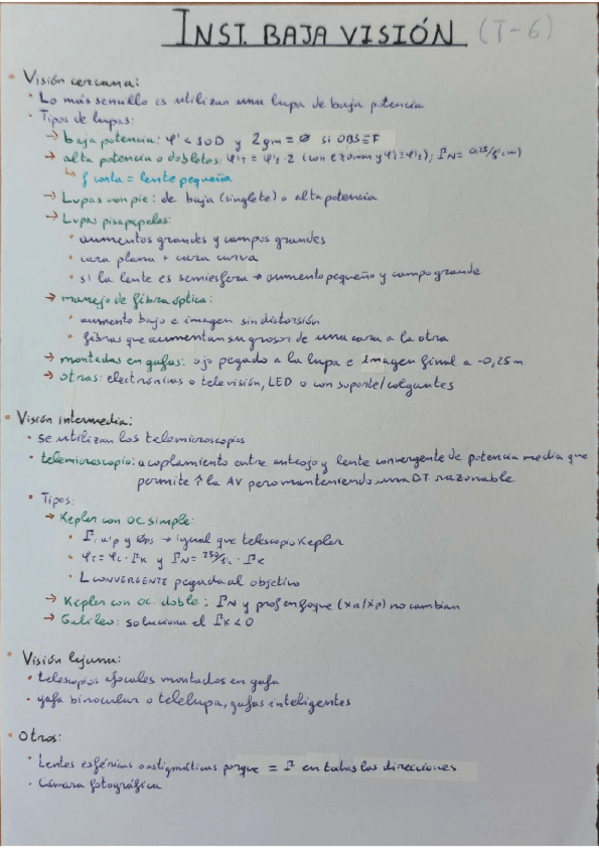 INST. BAJA VISIÓN (T-6)
• Visión cercana:
• Lo más sencillo es utilizar una lupa de baja potencia
• Tipos de lupas:
→ baja potencia: φ' < 10D y 2ym = ∅ si OBS≡F
→ alta potencia o dobletes: φ'T = φ'1·2 (con e≈0mm y φ'1=φ'2); ΓN=
↳ f corta = lente pequeña
→ Lupas con pie: de baja (singlete) o alta potencia
→ Lupas pisapapeles:
• aumentos grandes y campos grandes
• cara plana + cara curva
• si la lente es semiesfera → aumento pequeño y campo grande
→ manejo de fibra óptica:
• aumento bajo e imagen sin distorsión
• fibras que aumentan su grosor de una cara a la otra
→ montadas en gafas: ojo pegado a la lupa e imagen final a -0,25m
→ otras: electrónicas o televisión, LED o con soporte/colgantes
• Visión intermedia:
• se utilizan los telemicroscopios
• telemicroscopio: acoplamiento entre anteojo y lente convergente de potencia media que
permite ↑ la AV pero manteniendo una DT razonable
• Tipos:
→ Kepler con oc. simple:
y ØPS → igual que telescopio Kepler
• φT = φL · ΓK y ΓN = · ΓK
• L CONVERGENTE pegada al objetivo
→ Kepler con oc. doble: ΓN y prof enfoque (XR/XP) no cambian
→ Galileo: soluciona el ΓK<0
• Visión lejana:
• telescopios afocales montados en gafa
• gafa binocular o telelupa, gafas inteligentes
• Otros:
• Lentes esféricas o astigmáticas porque = Γ en todas las direcciones
• Cámara fotográfica